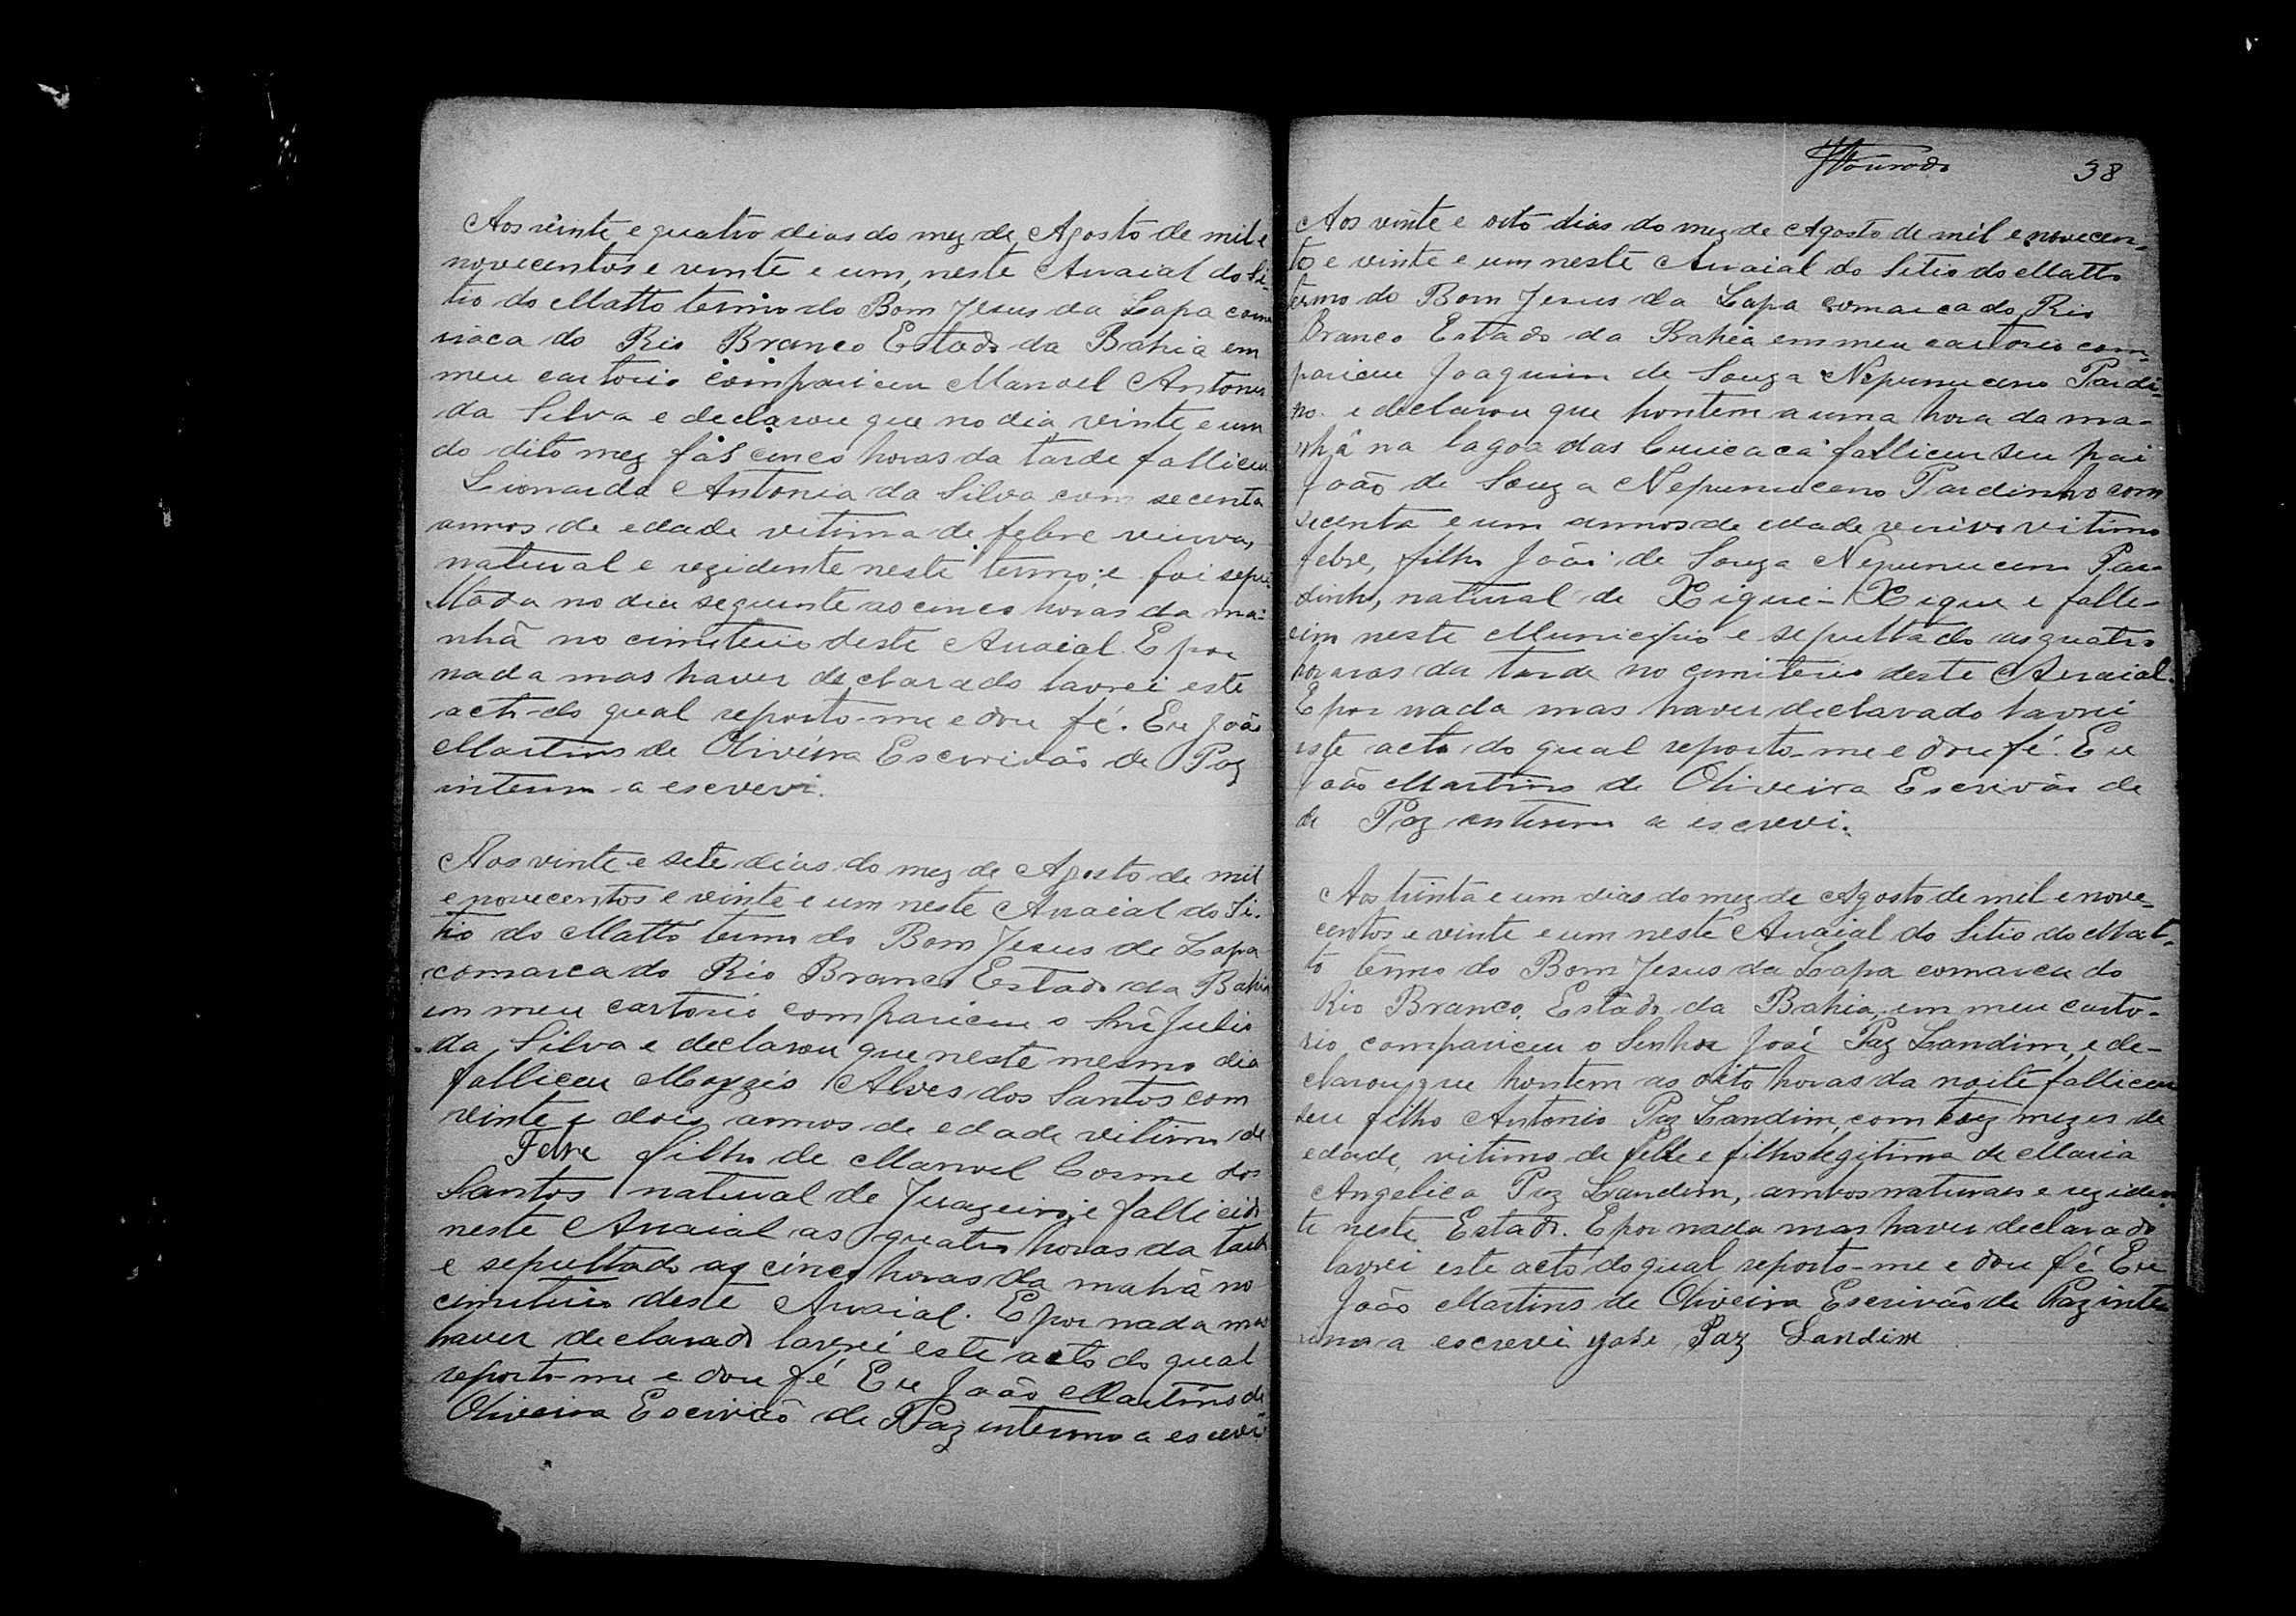 Aos vinte e quatro dias do mez de Agosto de mil e
novecentos e vinte e um, neste Arraial do Si-
tio do Matto termo do Bom Jesus da Lapa com
maca do Rio Branco Estado da Bahia em
meu cartorio compariceu Manoel Antonio
da Silva e declarou que no dia vinte e um
do dito mez fas cinco horas da tarde falliceu
Leonarda Antonia da Silva com secenta
annos de edade vitima de febre viuva,
natural e rezidente neste termo; e foi sepu-
ltada no dia seguinte as cinco horas da ma-
nhã no cimiterio deste Arraial. E por
nada mas haver declarado lavrei este
acto do qual reporto-me e dou fé. Eu João
Martins de Oliveira Escrivão de Paz
interino a escrevi.
Aos vinte e sete dias do mez de Agosto de mil
e novecentos e vinte e um neste Arraial do Si-
tio do Matto termo do Bom Jesus de Lapa
comarca do Rio Branco Estado da Bahia
em meu cartorio compariceu o Snr Julio
da Silva e declarou que neste mesmo dia
falliceu Moyzés Alves dos Santos com
vinte e dois annos de edade vitima de
Febre filho de Manoel Cosme dos
Santos natural de Juazeiro, e fallicido
neste Arraial as quatro horas da tarde
e sepultado as cinco horas da mahã no
cimiterio deste Arraial. E por nada mas
haver declarado lavrei este acto do qual
reporto-me e dou fé Eu João Martins de
Oliveira Escrivão de Paz interino a escrevi
38
Aos vinte e oito dias do mez de Agosto de mil e novecen-
tos e vinte e um neste Arraial do Sitio do Matto
termo do Bom Jesus da Lapa comarca do Rio
Branco Estado da Bahia em meu cartorio com-
pariceu Joaquim de Souza Nepumuceno Pardi-
no e declarou que hontem a uma hora da ma-
nhã na lagoa das falliceu seu pai
João de Souza Nepumuceno Pardinho com
secenta e um annos de edade veuivo vitimo
febre, filho João de Souza Nepumuceno Par-
dinho, natural de Xique-Xique e falle-
cim neste Municipio e sepultado as quatro
horaras da tarde no cimiterio deste Arraial.
E por nada mas haver declarado lavrei
este acto do qual reporto-me e dou fé. Eu
João Martins de Oliveira Escrivão de
de Paz interino a escrevi.
Aos trinta e um dias do mez de Agosto de mil e nove-
centos e vinte e um neste Arraial do Sitio do Mat-
to termo do Bom Jesus da Lapa comarca do
Rio Branco, Estado da Bahia, em meu carto-
rio compariceu o Senhor José Paz Landim, e de-
clarou que hontem as oito horas da noite falliceu
seu filho Antonio Paz Landim, com trez mezes de
edade, vitimo de febre e filho legitimo de Maria
Angelica Paz Landim, ambos naturaes e reziden
te neste Estado. E por nada mas haver declarado
lavrei este acto do qual reporto-me e dou fé Eu
João Martins de Oliveira Escrivão de Paz inte
rino a escrevi José Paz Landim